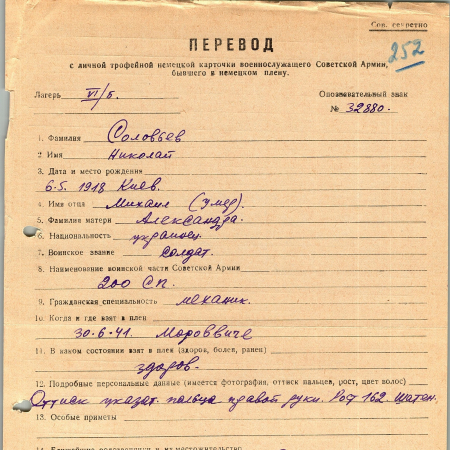 Сов. секретно
ПЕРЕВОД
252
с личной трофейной немецкой карточки военнослужащего Советской Армии,
бывшего в немецком плену.
Лагерь VI/б. Опознавательный знак
№ 32880.
1. Фамилия Соловьев
2. Имя Николай
3. Дата и место рождения
6.5. 1918 Киев.
4. Имя отца Михаил (умер).
5. Фамилия матери Александра.
6. Национальность украинец.
7. Воинское звание солдат.
8. Наименование воинской части Советской Армии
200 СП.
9. Гражданская специальность механик.
10. Когда и где взят в плен
30.6.41. Мороввиче
11. В каком состоянии взят в плен (здоров, болен, ранен)
здоров.
12. Подробные персональные данные (имеется фотография, оттиск пальцев, рост, цвет волос)
Оттиск указат. пальца правой руки. Рост 162. Шатен.
13. Особые приметы